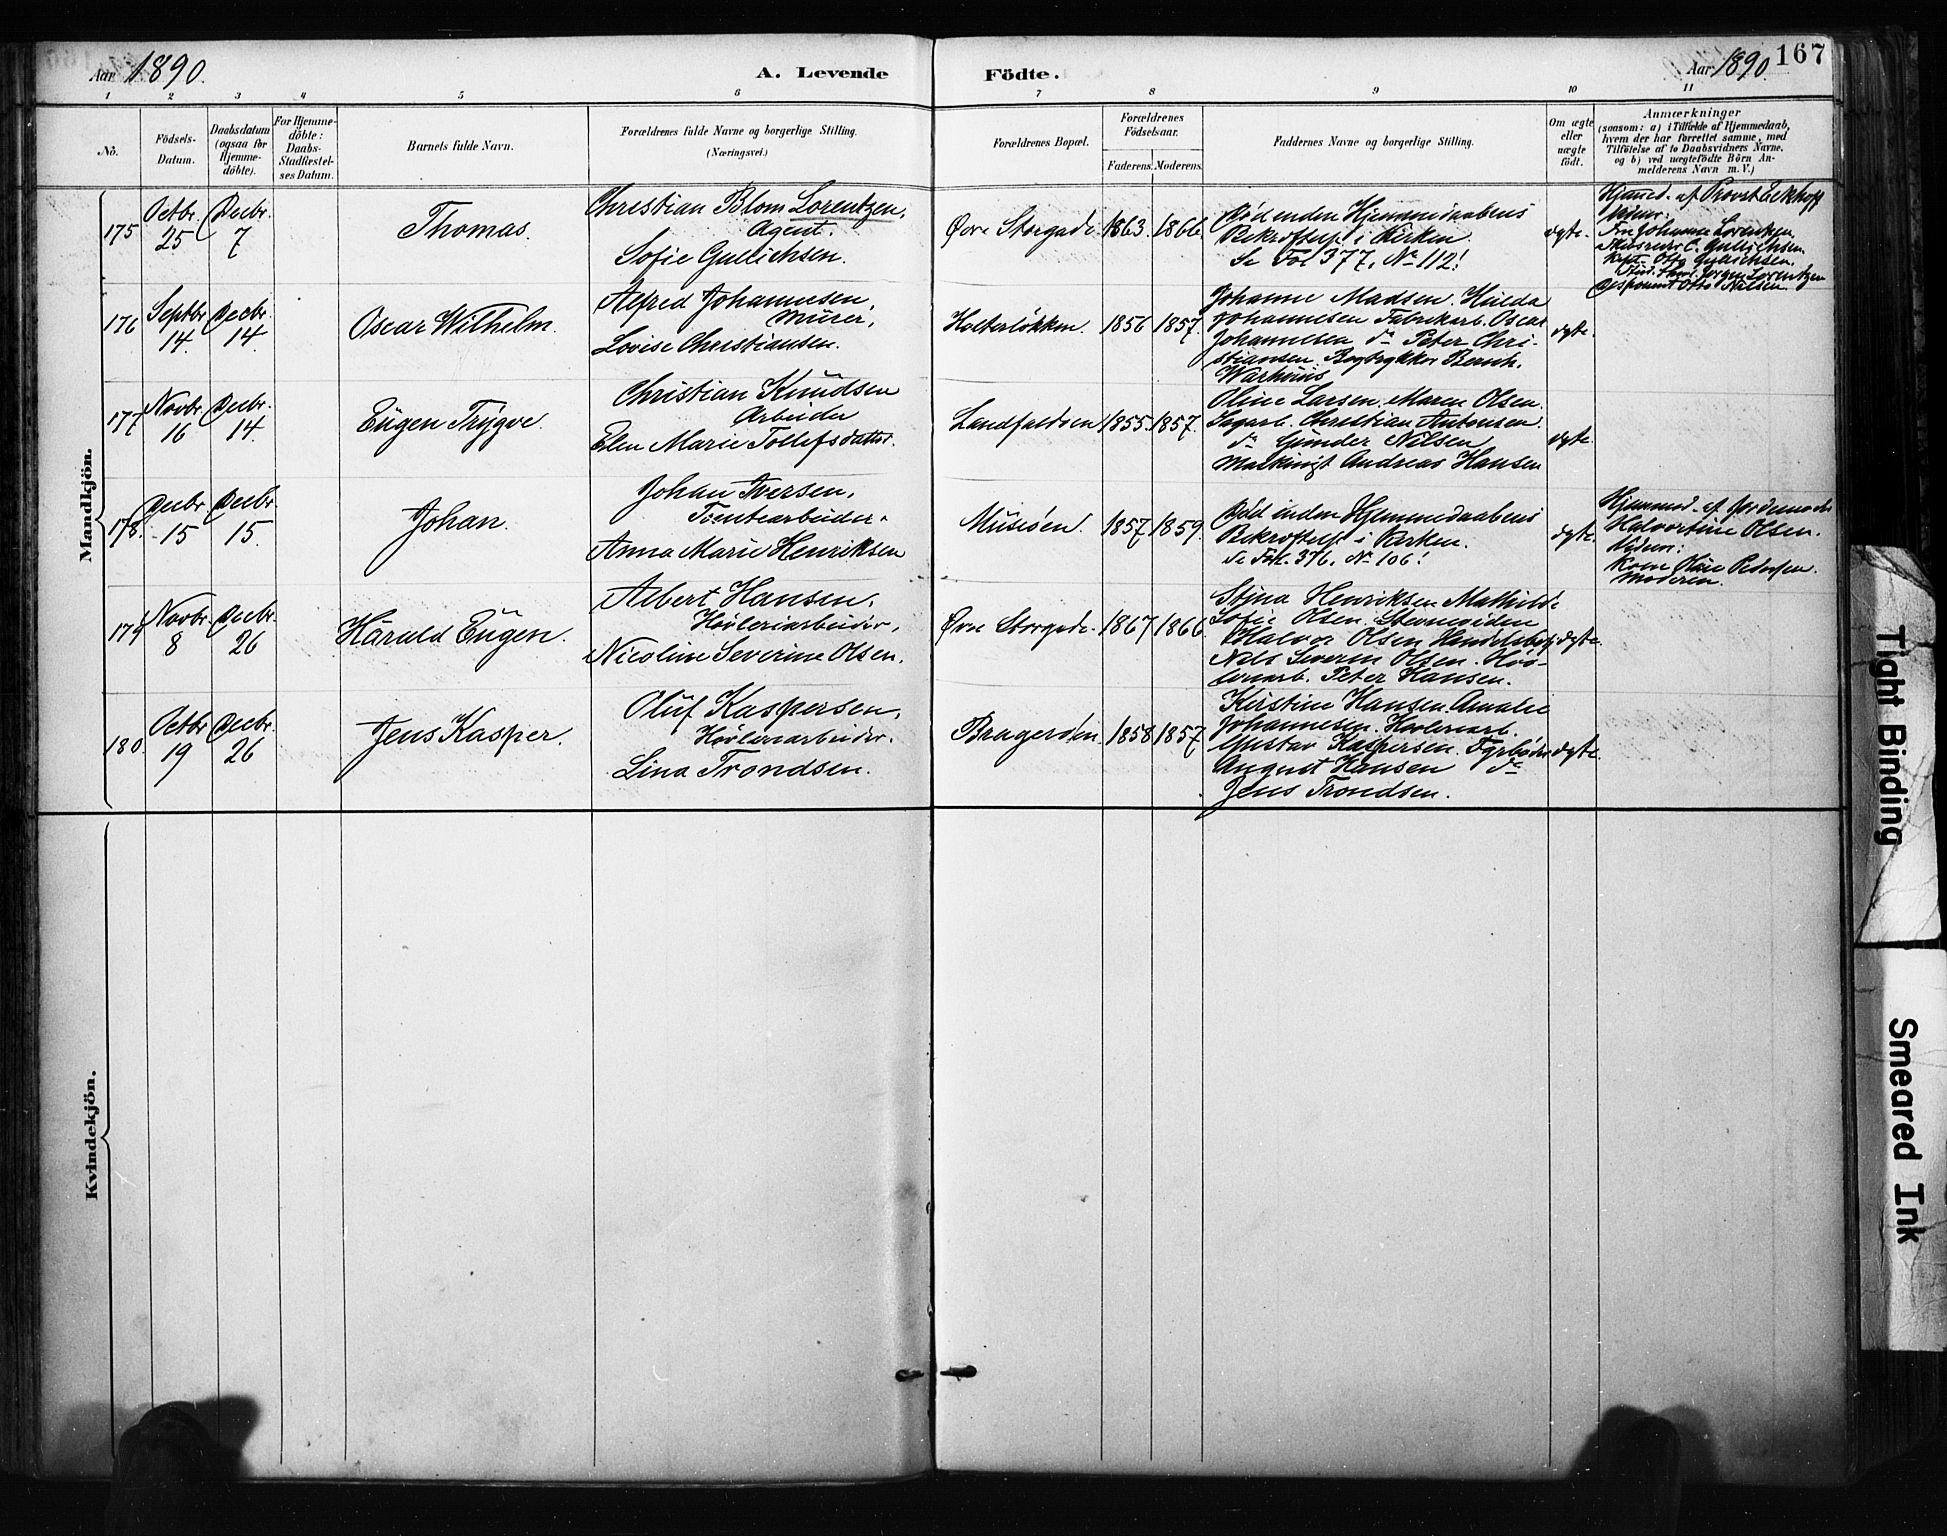 Aar 1890.
A. Levende Födte.
Aar 1890.
167
1 2 3 4 5 6 7 8 9 10 11
No.
Födsels-Datum.
Daabsdatum (ogsaa for Hjemme-döbte).
For Hjemme-döbte: Daabs-Stadfæstel-ses Datum.
Barnets fulde Navn.
Forældrenes fulde Navne og borgerlige Stilling.
(Næringsvei.)
Forældrenes Bopæl.
Forældrenes Födselsaar.
Faderens. Moderens.
Faddernes Navne og borgerlige Stilling.
Om ægte eller uægte födt.
Anmærkninger
(saasom: a) i Tilfælde af Hjemmedaab,
hvem der har forrettet samme, med
Tilföielse af to Daabsvidners Navne,
og b) ved uegtefödte Börn An-
melderens Navn m. V.)
Mandkjön.
175
Octbr. 25
Decbr. 7
Thomas.
Christian Blom Lorentzen,
Agent.
Sofie Gullichsen.
Øvre Storgade.
1863. 1866.
Død inden Hjemmedaabens
Bekræftelse i Kirken.
Se Fol 377. No 112!
ægte.
Hjemmed. af Provst Eckhoff
Vidner:
Fru Johanne Lorentzen
C. Gullichsen
Otto Gullichsen.
Stud. theol. Jørgen Lorentzen
Disponent Otto Nilsen.
176
Septbr. 14.
Decbr. 14.
Oscar Wilhelm.
Alfred Johannesen,
Murer,
Lovise Christiansen.
Holterløkken.
1856 1857.
Johanne Madsen. Hulda
Johannesen Fabrikarb. Oscar
Johannesen do Peter Chri-
stiansen. Bogtrykker Bernh.
Warhuus
ægte.
177
Novbr. 16
Decbr. 14.
Eugen Trygve.
Christian Knudsen
Arbeider
Elen Marie Tollefsdatter.
Landfaldøen
1855. 1857.
Oline Larsen. Maren Olsen.
Sagarb. Christian Antonsen.
do Gunder Nilsen
Andreas Hansen
ægte.
178.
Decbr. 15
Decbr. 15.
Johan.
Johan Iversen,
Tomtearbeider.
Anna Marie Henriksen
Museøen.
1857. 1859.
Død inden Hjemmedaabens
Bekræftelse i Kirken.
Se Fol. 376. No 106!
ægte.
Hjemmed. af Jordemoder
Halvordine Olsen.
Vidner:
Kone Pedersen.
Moderen.
179
Novbr. 8
Decbr. 26
Harald Eugen.
Albert Hansen,
Høvleriarbeider,
Nicoline Severine Olsen.
Øvre Storgade.
1867 1866
Stina Henriksen Mathilde
Sofie Olsen.
Halvor Olsen Handelsbetj.
Nils Severin Olsen. Høv-
leriarb. Peter Hansen.
ægte.
180.
Octbr 19
Decbr. 26
Jens Kasper.
Oluf Kaspersen,
Høvleriarbeider.
Lina Trondsen.
Bragerøen.
1858 1857
Kirstine Hansen Amalie
Johannesen. Høvleriarb.
Gustav Kaspersen. Fyrbøder
August Hansen do
Jens Trondsen.
ægte.
Kvindekjön.
Tight Binding
Smeared Ink